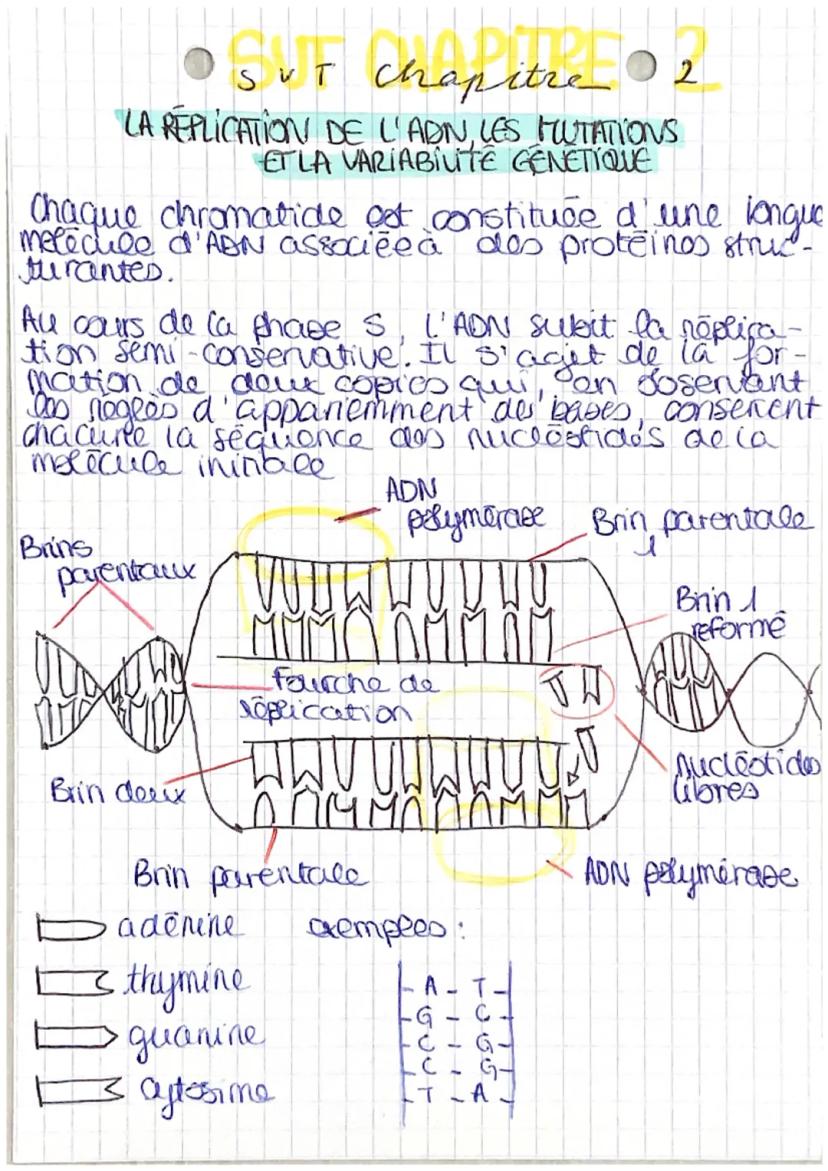 SVT CHAPITRE 2
SVT Chapitre 2
LA RÉPLICATION DE L'ADN, LES MUTATIONS
ET LA VARIABILITÉ GÉNÉTIQUE
Chaque chromatide est constituée d'une longue
molécule d'ADN associée à des protéines struc-
turantes.
Au cours de la phase S, l'ADN subit la réplica-
tion semi-conservative. Il s'agit de la for-
mation de deux copies qui, en observant
les règles d'appariemment des bases, conservent
chacune la séquence des nucléotides de la
molécule ininiale
ADN
polymérase
Brin parentale
1
Brins
parentaux
Brin 1
reformé
Fourche de
réplication
nucléotides
libres
Brin deux
Brin parentale
ADN polymérase
adénine
exemples :
thymine
guanine
cytosime
A - T
G - C
C - G
C - G
T - A